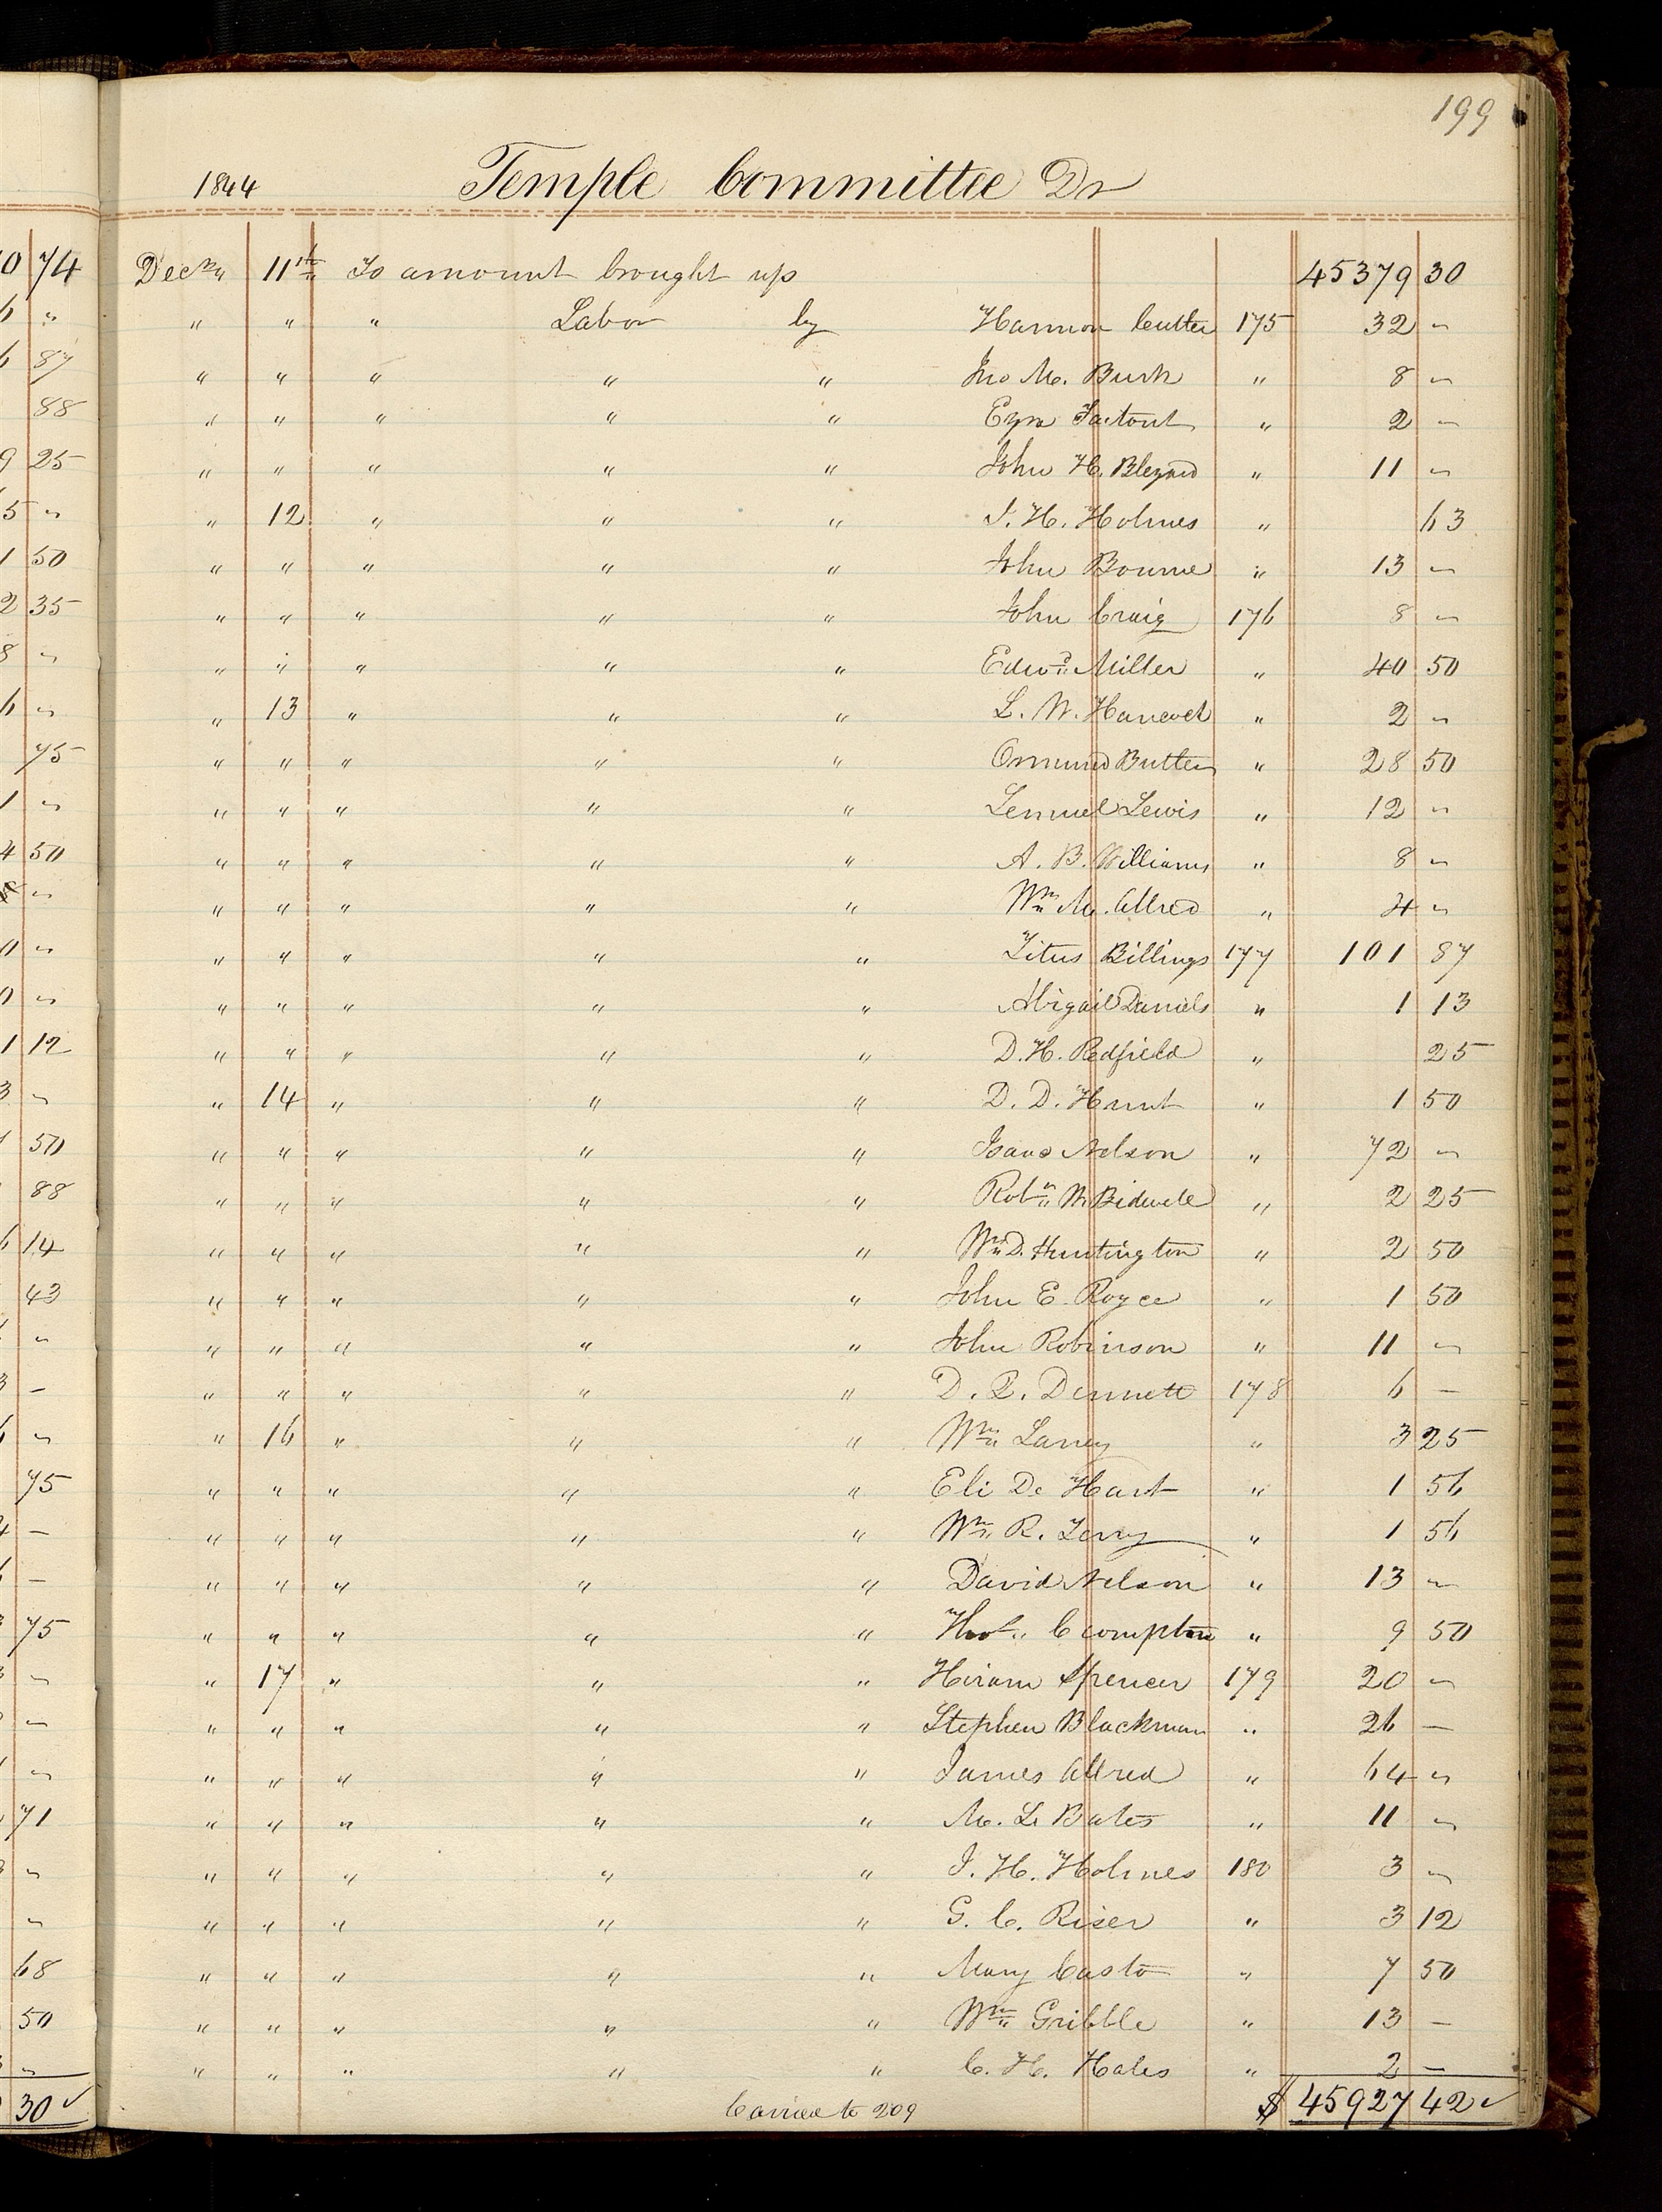 199
1844 Temple Committee Dr
Decr 11th To amount brought up 45379 30
" " " Labor by Harmon Cutler 175 32 "
" " " " " Jno M. Burk " 8 "
" " " " " Ezra " 2 "
" " " " " John H. Blezard " 11 "
" 12 " " " J. H. Holmes " 63
" " " " " John Bourne " 13 "
" " " " " John Craig 176 8 "
" " " " " Edwd Miller " 40 50
" 13 " " " L. W. Hancock " 2 "
" " " " " Ormund Butler " 28 50
" " " " " Lemuel Lewis " 12 "
" " " " " A. B. Williams " 8 "
" " " " " Wm M. Allred " 4 "
" " " " " Titus Billings 177 101 87
" " " " " Abigail Daniels " 1 13
" " " " " D. H. Redfield " 25
" 14 " " " D. D. Hunt " 1 50
" " " " " Isaac Nelson " 72 "
" " " " " W Bidwell " 2 25
" " " " " Wm D. Huntington " 2 50
" " " " " John E. Royce " 1 50
" " " " " John Robinson " 11 "
" " " " " D. Q. Dennett 178 6 —
" 16 " " " Wm Laney " 3 25
" " " " " Eli De Hart " 1 56
" " " " " Wm R. Terry " 1 56
" " " " " David Nelson " 13 "
" " " " " Compton " 9 50
" 17 " " " Hiram Spencer 179 20 "
" " " " " Stephen Blackman " 26 —
" " " " " James Allred " 64 "
" " " " " M. L. Bates " 11 "
" " " " " J. H. Holmes 180 3 "
" " " " " G. C. Riser " 3 12
" " " " " Mary Casto " 7 50
" " " " " Wm Gribble " 13 —
" " " " " C. H. Hales " 2 —
Carried to 209 $ 45927 42 ✓